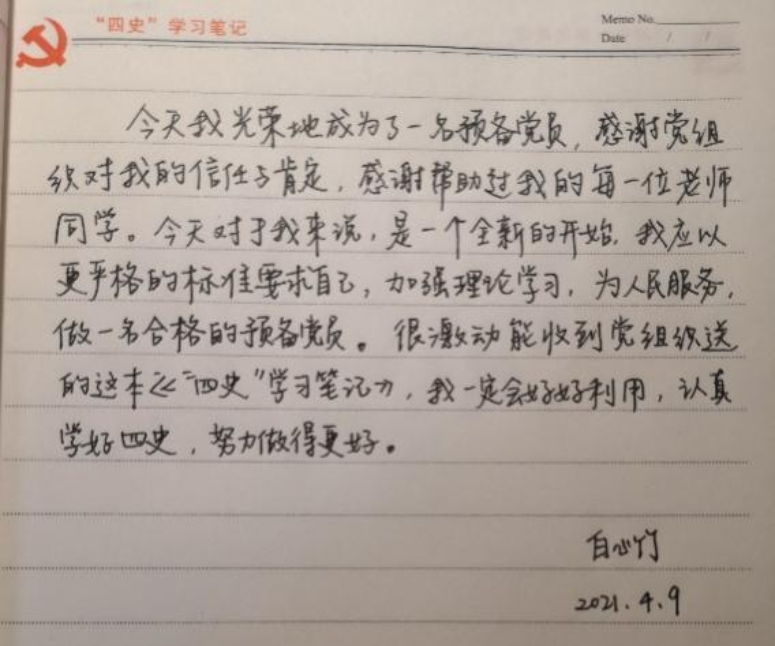 “四史”学习笔记
Memo No.
Date / /
今天我光荣地成为了一名预备党员，感谢党组
织对我的信任与肯定，感谢帮助过我的每一位老师
同学。今天对于我来说，是一个全新的开始，我应以
更严格的标准要求自己，加强理论学习，为人民服务，
做一名合格的预备党员。很激动能收到党组织送
的这本《“四史”学习笔记》，我一定会好好利用，认真
学好四史，努力做得更好。
白心竹
2021.4.9